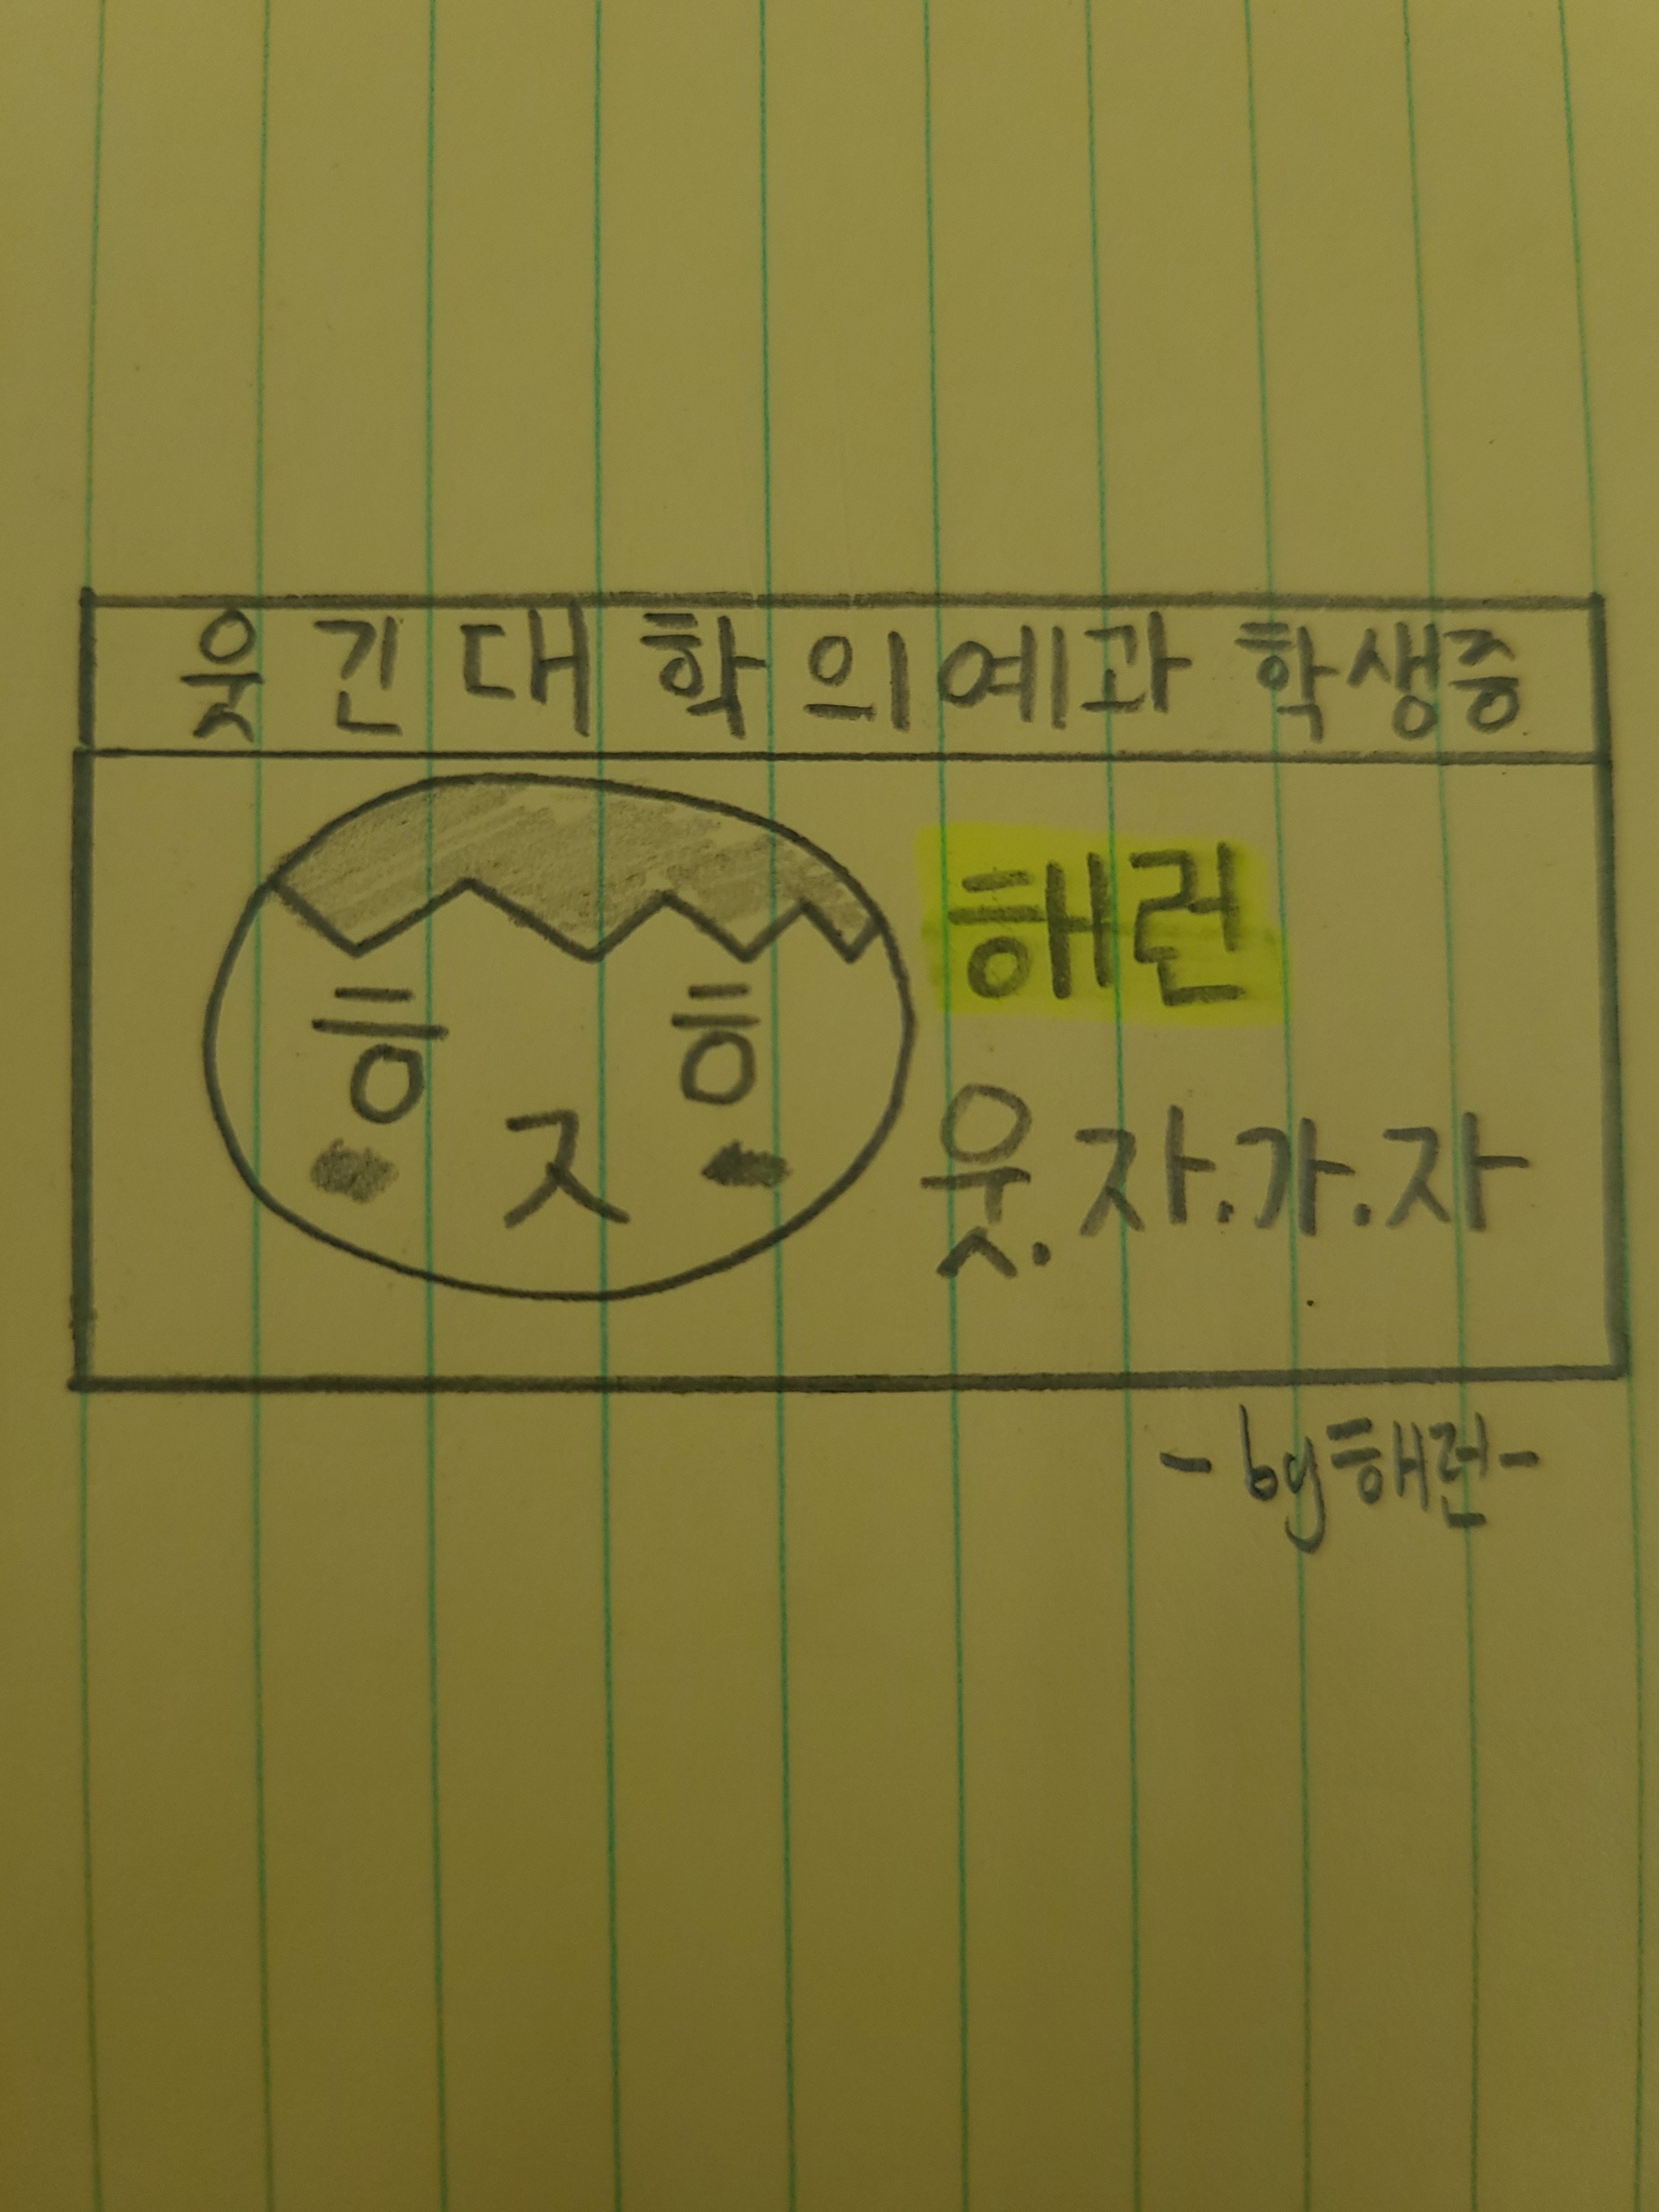 웃긴대학의예과 학생증
해런
흐 흐
ㅈ
웃.자.가.자
-by해런-